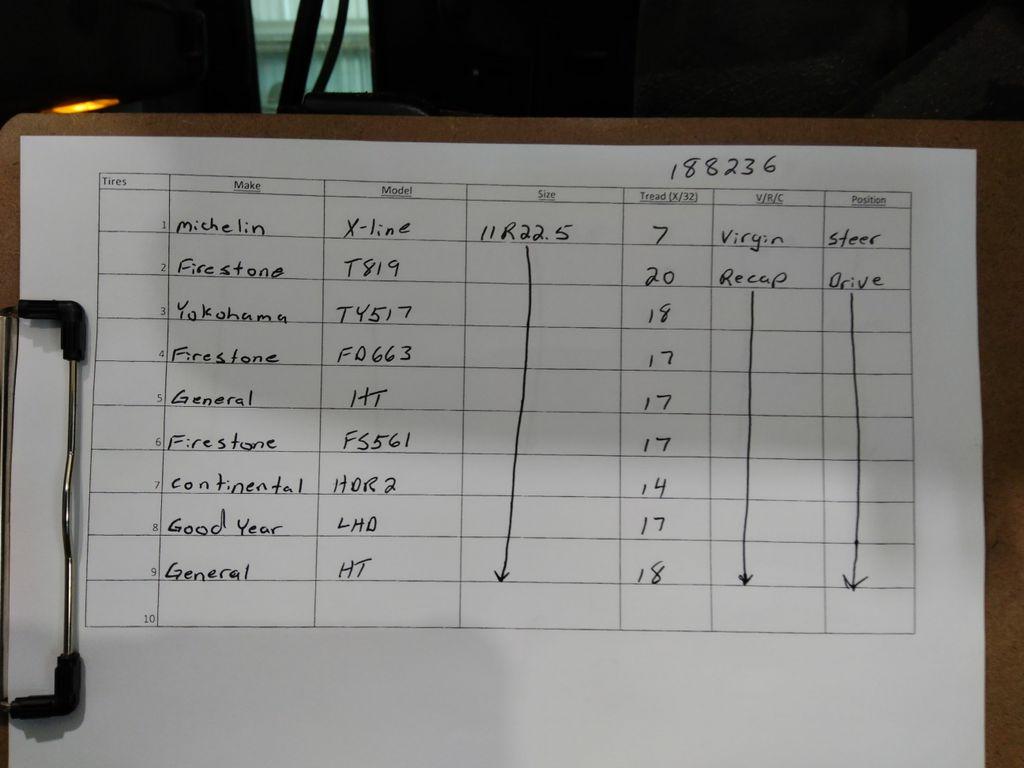 188236
Tires Make Model Size Tread (X/32) V/R/C Position
1 Michelin X-line 11R22.5 7 Virgin Steer
2 Firestone T819 20 Recap Drive
3 Yokohama TY517 18
4 Firestone FD663 17
5 General HT 17
6 Firestone FS561 17
7 Continental HDR2 14
8 Good Year LHD 17
9 General HT 18
10